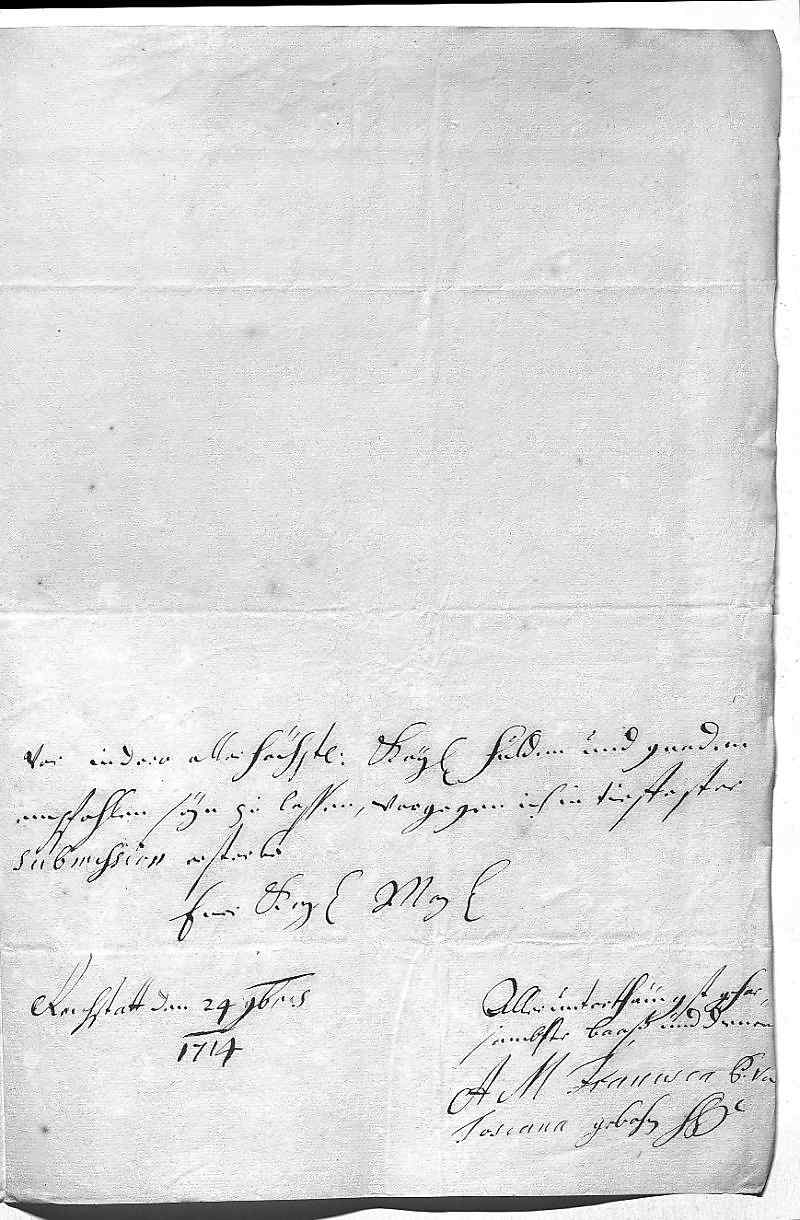 in dero allerhöchste: Kayl hulden und gnaden
empfohlen seyn zu lassen, wogegen ich in tieffester
submission ersterbe
Euer Kayl May
Reichstatt den 24 9bris
1714
Allerunterthänigst gehor-
sambste baaß und
A M Francisca
Toscana gebohrn